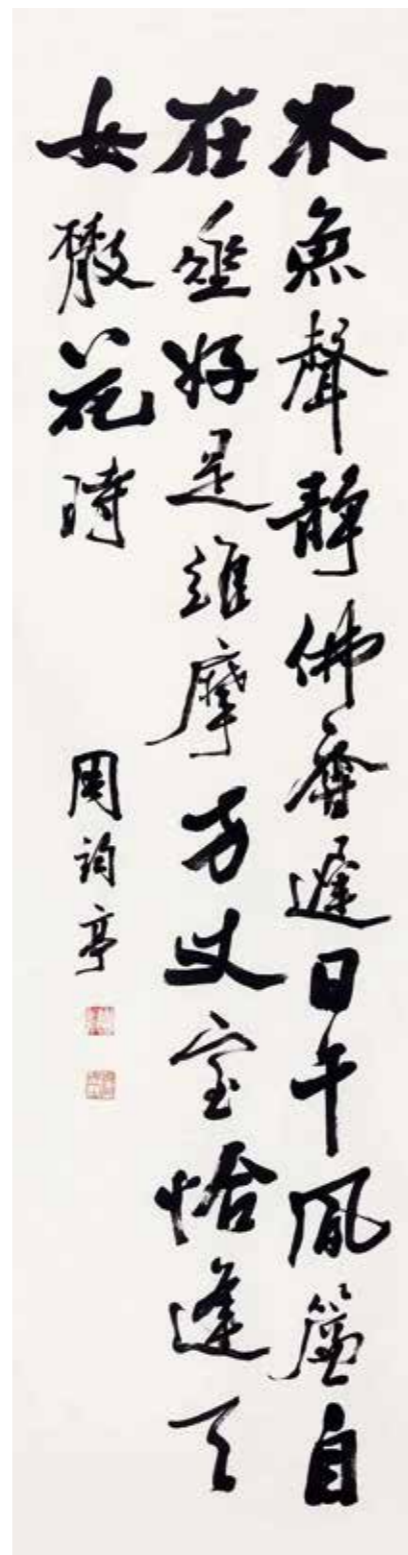 木魚聲静佛香遲日午風簾自
在垂好是維摩方丈室恰逢天
女散花時
周詢亭